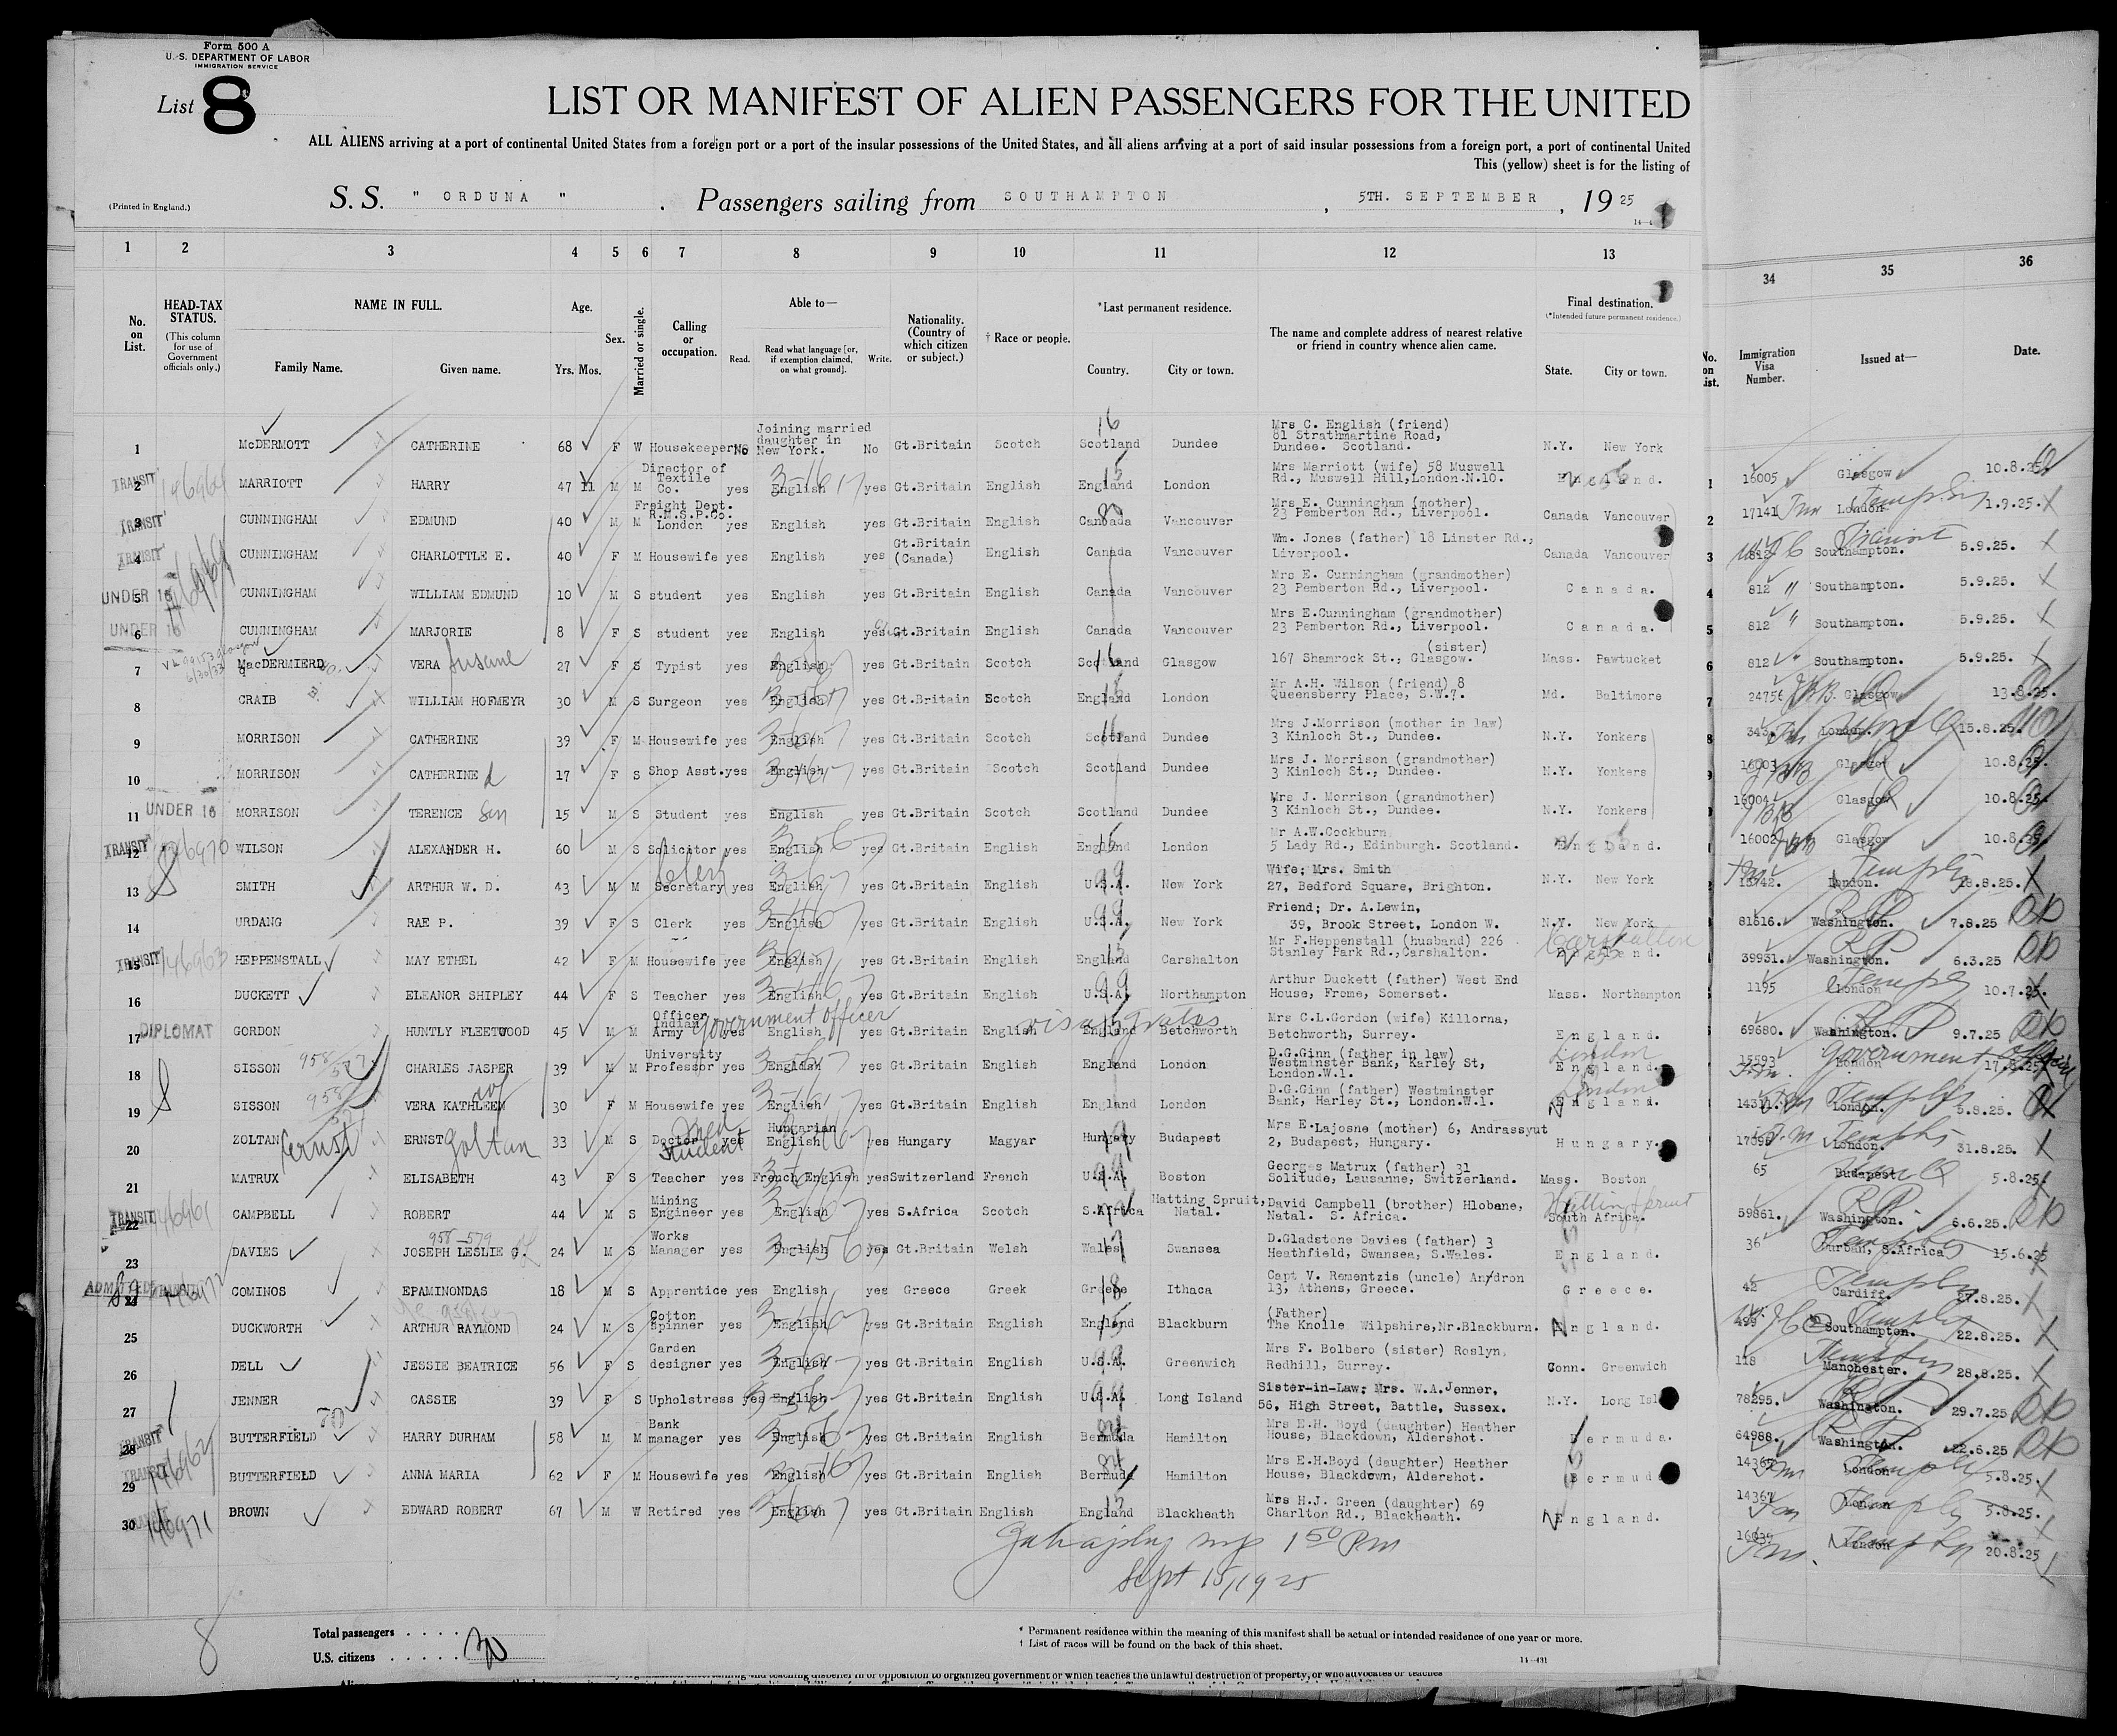 Form 500 A
U. S. DEPARTMENT OF LABOR
IMMIGRATION SERVICE
List 8
LIST OR MANIFEST OF ALIEN PASSENGERS FOR THE UNITED
ALL ALIENS arriving at a port of continental United States from a foreign port or a port of the insular possessions of the United States, and all aliens arriving at a port of said insular possessions from a foreign port, a port of continental United
This (yellow) sheet is for the listing of
(Printed in England.)
S. S. " ORDUNA " . Passengers sailing from SOUTHAMPTON , 5TH. SEPTEMBER , 19 25
1 2 3 4 5 6 7 8 9 10 11 12 13 34 35 36
No. on List.
HEAD-TAX STATUS.
(This column for use of Government officials only.)
NAME IN FULL.
Family Name. Given name.
Age.
Yrs. Mos.
Sex.
Married or single.
Calling or occupation.
Able to—
Read. Read what language [or, if exemption claimed, on what ground]. Write.
Nationality. (Country of which citizen or subject.)
† Race or people.
*Last permanent residence.
Country. City or town.
The name and complete address of nearest relative or friend in country whence alien came.
Final destination.
(*Intended future permanent residence.)
State. City or town.
Immigration Visa Number.
Issued at—
Date.
1 McDERMOTT CATHERINE 68 F W Housekeeper No Joining married daughter in New York. No Gt.Britain Scotch 16 Scotland Dundee Mrs C. English (friend) 81 Strathmartine Road, Dundee. Scotland. N.Y. New York
TRANSIT 2 MARRIOTT HARRY 47 11 M M Director of Textile Co. yes English yes Gt.Britain English England London Mrs Marriott (wife) 58 Muswell Rd., Muswell Hill,London.N.10. England.
TRANSIT 3 CUNNINGHAM EDMUND 40 M M Freight Dept. R.M.S.P.Co. London yes English yes Gt.Britain English Canada Vancouver Mrs E. Cunningham (mother) 23 Pemberton Rd., Liverpool. Canada Vancouver
TRANSIT 4 CUNNINGHAM CHARLOTTLE E. 40 F M Housewife yes English yes Gt.Britain (Canada) English Canada Vancouver Wm. Jones (father) 18 Linster Rd., Liverpool. Canada Vancouver
UNDER 16 5 CUNNINGHAM WILLIAM EDMUND 10 M S student yes English yes Gt.Britain English Canada Vancouver Mrs E. Cunningham (grandmother) 23 Pemberton Rd., Liverpool. Canada.
UNDER 16 6 CUNNINGHAM MARJORIE 8 F S student yes English yes Gt.Britain English Canada Vancouver Mrs E.Cunningham (grandmother) 23 Pemberton Rd., Liverpool. Canada.
7 MacDERMIERD VERA Susane 27 F S Typist yes English yes Gt.Britain Scotch Scotland Glasgow (sister) 167 Shamrock St., Glasgow. Mass. Pawtucket
8 CRAIB WILLIAM HOFMEYR 30 M S Surgeon yes English yes Gt.Britain Scotch England London Mr A.H. Wilson (friend) 8 Queensberry Place, S.W.7. Md. Baltimore
9 MORRISON CATHERINE 39 F M Housewife yes English yes Gt.Britain Scotch Scotland Dundee Mrs J.Morrison (mother in law) 3 Kinloch St., Dundee. N.Y. Yonkers
10 MORRISON CATHERINE d 17 F S Shop Asst. yes English yes Gt.Britain Scotch Scotland Dundee Mrs J. Morrison (grandmother) 3 Kinloch St., Dundee. N.Y. Yonkers
UNDER 16 11 MORRISON TERENCE Son 15 M S Student yes English yes Gt.Britain Scotch Scotland Dundee Mrs J. Morrison (grandmother) 3 Kinloch St., Dundee. N.Y. Yonkers
TRANSIT 12 WILSON ALEXANDER H. 60 M S Solicitor yes English yes Gt.Britain English England London Mr A.W.Cockburn 5 Lady Rd., Edinburgh. Scotland. England.
13 SMITH ARTHUR W. D. 43 M M Secretary yes English yes Gt.Britain English U.S.A. New York Wife; Mrs. Smith 27, Bedford Square, Brighton. N.Y. New York
14 URDANG RAE P. 39 F S Clerk yes English yes Gt.Britain English U.S.A. New York Friend; Dr. A.Lewin, 39, Brook Street, London W. N.Y. New York
TRANSIT 146963 15 HEPPENSTALL MAY ETHEL 42 F M Housewife yes English yes Gt.Britain English England Carshalton Mr F.Heppenstall (husband) 226 Stanley Park Rd.,Carshalton. Carshalton England.
16 DUCKETT ELEANOR SHIPLEY 44 F S Teacher yes English yes Gt.Britain English U.S.A. Northampton Arthur Duckett (father) West End House, Frome, Somerset. Mass. Northampton
DIPLOMAT 17 GORDON HUNTLY FLEETWOOD 45 M M Officer Indian Army Government Officer yes English yes Gt.Britain English England Betchworth Mrs C.L.Gordon (wife) Killorna, Betchworth, Surrey. England.
18 SISSON CHARLES JASPER 39 M M University Professor yes English yes Gt.Britain English England London D.G.Ginn (father in law) Westminster Bank, Karley St, London.W.1. London England.
19 SISSON VERA KATHLEEN 30 F M Housewife yes English yes Gt.Britain English England London D.G.Ginn (father) Westminster Bank, Harley St., London.W.1. London England.
20 ZOLTAN Ernst ERNST Zoltan 33 M S Doctor Med Student yes Hungarian English yes Hungary Magyar Hungary Budapest Mrs E.Lajosne (mother) 6, Andrassyut 2, Budapest, Hungary. Hungary.
21 MATRUX ELISABETH 43 F S Teacher yes French English yes Switzerland French U.S.A. Boston Georges Matrux (father) 31 Solitude, Lausanne, Switzerland. Mass. Boston
TRANSIT 146961 22 CAMPBELL ROBERT 44 M S Mining Engineer yes English yes S.Africa Scotch S.Africa Hatting Spruit, Natal. David Campbell (brother) Hlobane, Natal. S. Africa. South Africa.
23 DAVIES 958-579 JOSEPH LESLIE G. 24 M S Works Manager yes English yes Gt.Britain Welsh Wales Swansea D.Gladstone Davies (father) 3 Heathfield, Swansea, S.Wales. England.
ADMITTED 24 COMINOS EPAMINONDAS 18 M S Apprentice yes English yes Greece Greek Greece Ithaca Capt V. Rementzis (uncle) Andron 13, Athens, Greece. Greece.
25 DUCKWORTH ARTHUR RAYMOND 24 M S Cotton Spinner yes English yes Gt.Britain English England Blackburn (Father) The Knolle Wilpshire,Nr.Blackburn. England.
26 DELL JESSIE BEATRICE 56 F S Garden designer yes English yes Gt.Britain English U.S.A. Greenwich Mrs F. Bolbero (sister) Roslyn, Redhill, Surrey. Conn. Greenwich
27 JENNER CASSIE 39 F S Upholstress yes English yes Gt.Britain English U.S.A. Long Island Sister-in-Law; Mrs. W.A.Jenner, 56, High Street, Battle, Sussex. N.Y. Long Isl
TRANSIT 28 BUTTERFIELD HARRY DURHAM 58 M M Bank manager yes English yes Gt.Britain English Bermuda Hamilton Mrs E.H. Boyd (daughter) Heather House, Blackdown, Aldershot. Bermuda.
TRANSIT 29 BUTTERFIELD ANNA MARIA 62 F M Housewife yes English yes Gt.Britain English Bermuda Hamilton Mrs E.H.Boyd (daughter) Heather House, Blackdown, Aldershot. Bermuda
30 146971 BROWN EDWARD ROBERT 67 M W Retired yes English yes Gt.Britain English England Blackheath Mrs H.J. Green (daughter) 69 Charlton Rd., Blackheath. England.
1 16005 Glasgow 10.8.25.
2 17141 London 1.9.25.
3 812 Southampton. Transit 5.9.25.
4 812 " Southampton. 5.9.25.
5 812 " Southampton. 5.9.25.
6 812 " Southampton. 5.9.25.
7 24756 Glasgow 13.8.25.
8 343 London. 15.8.25.
9 16003 Glasgow 10.8.25.
16004 Glasgow 10.8.25.
16002 Glasgow 10.8.25.
London. 18.8.25.
81616. Washington. 7.8.25
39931. Washington. 6.3.25
1195 London 10.7.25.
69680. Washington. 9.7.25
15593 London Government 17.8.25
London. 5.8.25.
London. 31.8.25.
65 Budapest 5.8.25.
59861. Washington. 6.6.25
36 Durban, S.Africa 15.6.25
42 Cardiff. 27.8.25.
499 Southampton. 22.8.25.
118 Manchester. 28.8.25.
78295. Washington. 29.7.25
64988. Washington. 22.6.25
London 5.8.25.
14367 London 5.8.25.
London 20.8.25
1 50 Pm
Sept 15, 1925
8
Total passengers . . . . 30
U.S. citizens . . . . .
* Permanent residence within the meaning of this manifest shall be actual or intended residence of one year or more.
† List of races will be found on the back of this sheet.
14—431